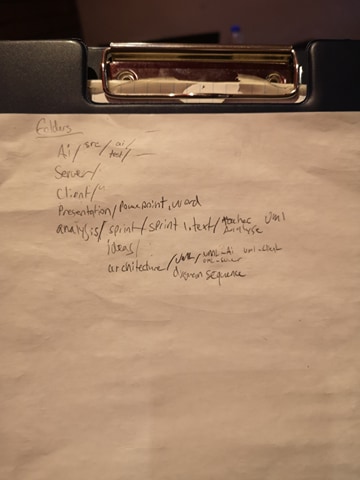 Folders
Ai/src/ai/
test/
Server/
Client/"
Presentation/PowerPoint, word
analysis/sprint/sprint 1.text/ UML
Analyse
ideas/
architecture/UML/UML-Ai uml-client
uml-server
Diagram sequence